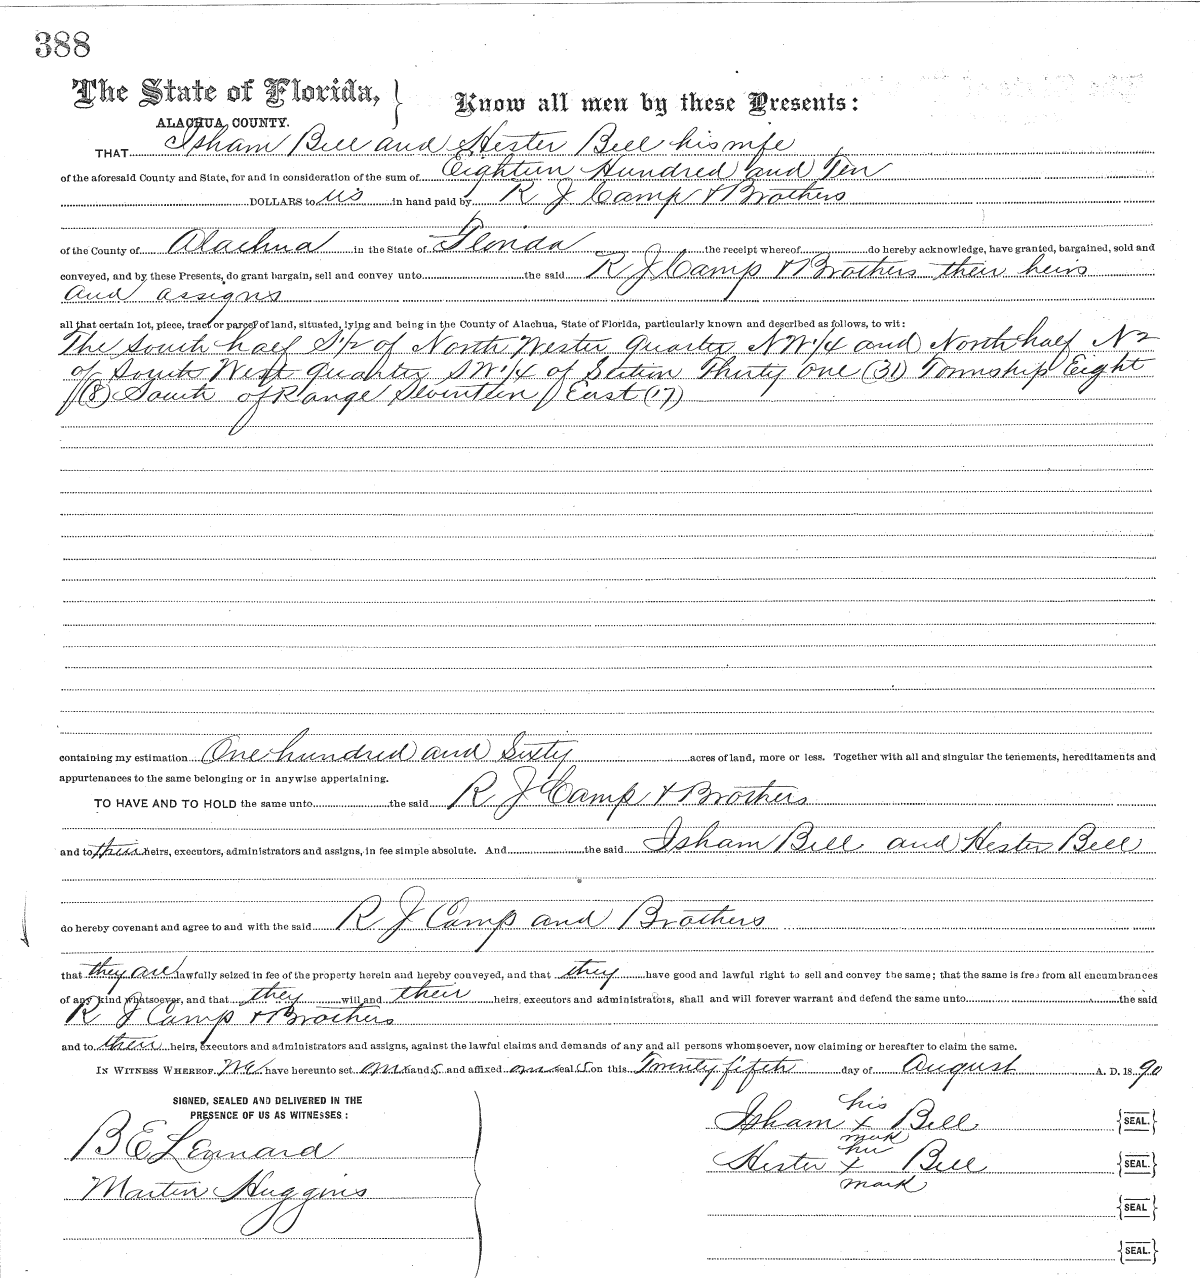 388
The State of Florida, } Know all men by these Presents:
ALACHUA COUNTY.
THAT Isham Bell and Hester Bell his wife
of the aforesaid County and State, for and in consideration of the sum of Eighteen Hundred and Ten
DOLLARS to us in hand paid by R J Camp & Brothers
of the County of Alachua in the State of Florida the receipt whereof do hereby acknowledge, have granted, bargained, sold and
conveyed, and by these Presents, do grant bargain, sell and convey unto the said R J Camp & Brothers their heirs
and assigns
all that certain lot, piece, tract or parcel of land, situated, lying and being in the County of Alachua, State of Florida, particularly known and described as follows, to wit:
The South half S1/2 of North Wester quarter NW1/4 and North half N2
of South West quarter SW1/4 of Section Thirty One (31) Township Eight
(8) South of Range Seventeen East (17)
containing my estimation One hundred and Sixty acres of land, more or less. Together with all and singular the tenements, hereditaments and
appurtenances to the same belonging or in anywise appertaining.
TO HAVE AND TO HOLD the same unto the said R J Camp & Brothers
and to their heirs, executors, administrators and assigns, in fee simple absolute. And the said Isham Bell and Hester Bell
do hereby covenant and agree to and with the said R J Camp and Brothers
that they are lawfully seized in fee of the property herein and hereby conveyed, and that they have good and lawful right to sell and convey the same; that the same is free from all encumbrances
of any kind whatsoever, and that they will and their heirs, executors and administrators, shall and will forever warrant and defend the same unto the said
R J Camp & Brothers
and to their heirs, executors and administrators and assigns, against the lawful claims and demands of any and all persons whomsoever, now claiming or hereafter to claim the same.
IN WITNESS WHEREOF, We have hereunto set our hands and affixed our seals on this Twenty fifth day of August A. D. 1890
SIGNED, SEALED AND DELIVERED IN THE
PRESENCE OF US AS WITNESSES:
B E Lennard
Martin Huggins
his
Isham x Bell {SEAL.}
mark
her
Hester x Bell {SEAL.}
mark
{SEAL}
{SEAL.}